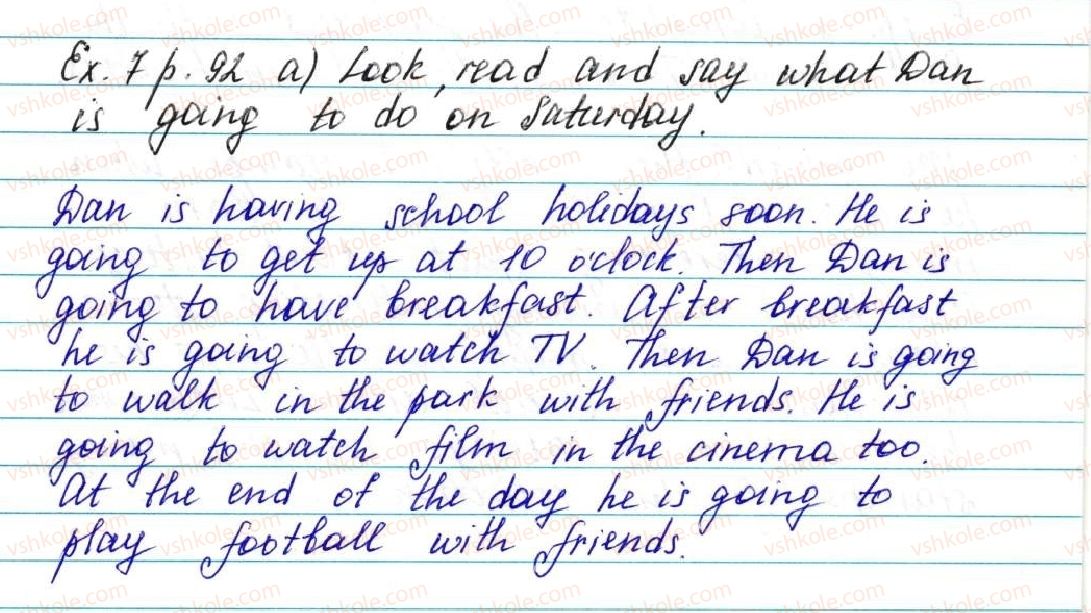 Ex. 7 p. 92 a) Look, read and say what Dan
is going to do on Saturday.
Dan is having school holidays soon. He is
going to get up at 10 o'clock. Then Dan is
going to have breakfast. After breakfast
he is going to watch TV. Then Dan is going
to walk in the park with friends. He is
going to watch film in the cinema too.
At the end of the day he is going to
play football with friends.
vshkole.com